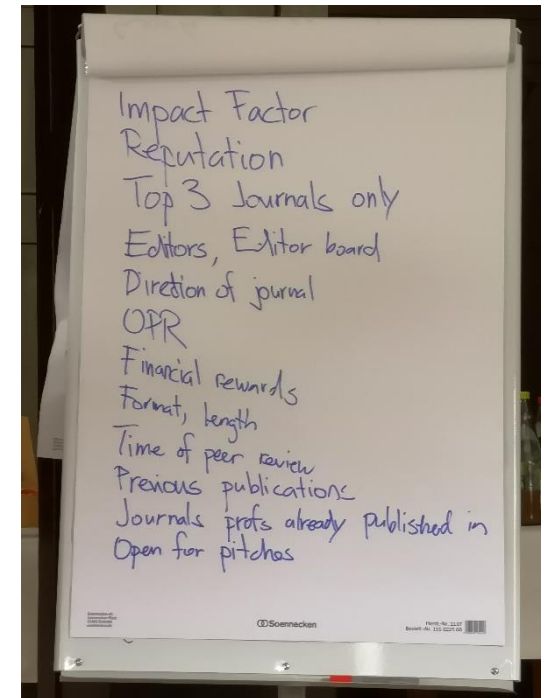 Impact Factor
Reputation
Top 3 Journals only
Editors, Editor board
Diretion of journal
OPR
Financial rewards
Format, length
Time of peer review
Previous publications
Journals profs already published in
Open for pitches
Soennecken